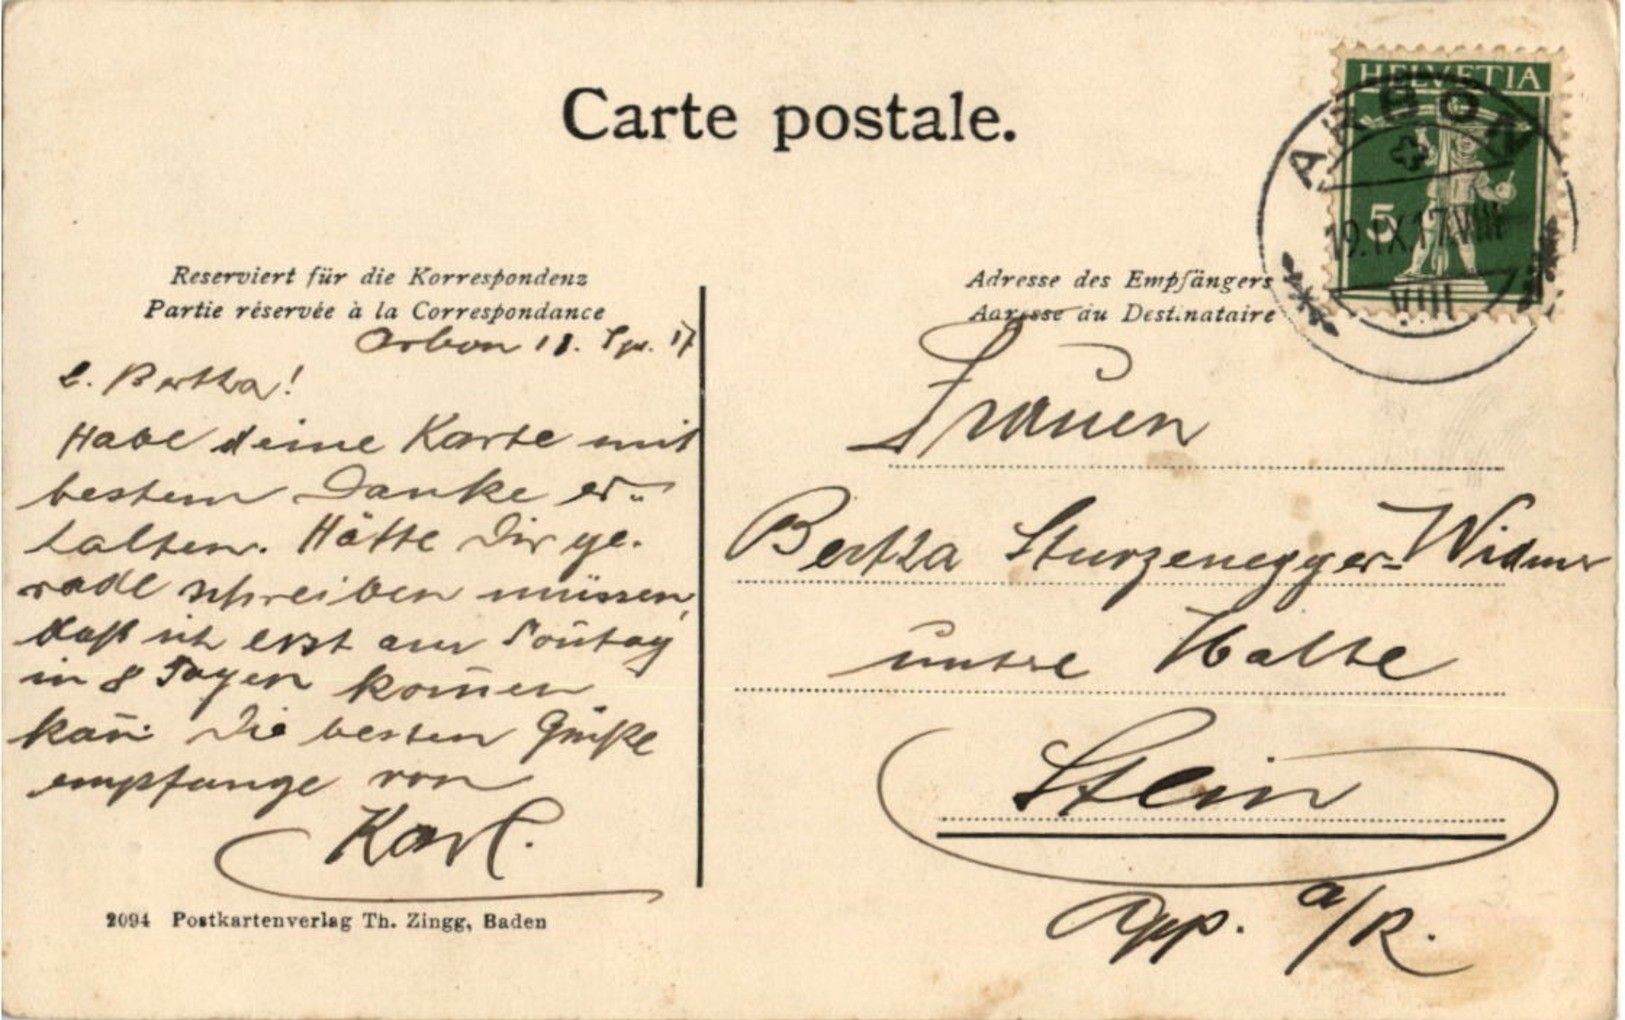 Carte postale.
HELVETIA
ARBON
5
19.IX.17.VIII
VIII
Reserviert für die Korrespondenz
Partie réservée à la Correspondance
Adresse des Empfängers
Adresse du Destinataire
Arbon 18. Sp. 17
L. Bertha!
Habe deine Karte mit
bestem Danke er-
halten. Hätte Dir ge-
rade schreiben müssen,
daß ich erst am Son̄tag
in 8 Tagen kom̄en
kan̄. Die besten Grüße
empfange von
Karl.
Frauen
Bertha Sturzenegger-Widmer
untre Halte
Stein
App. a/R.
2094 Postkartenverlag Th. Zingg, Baden